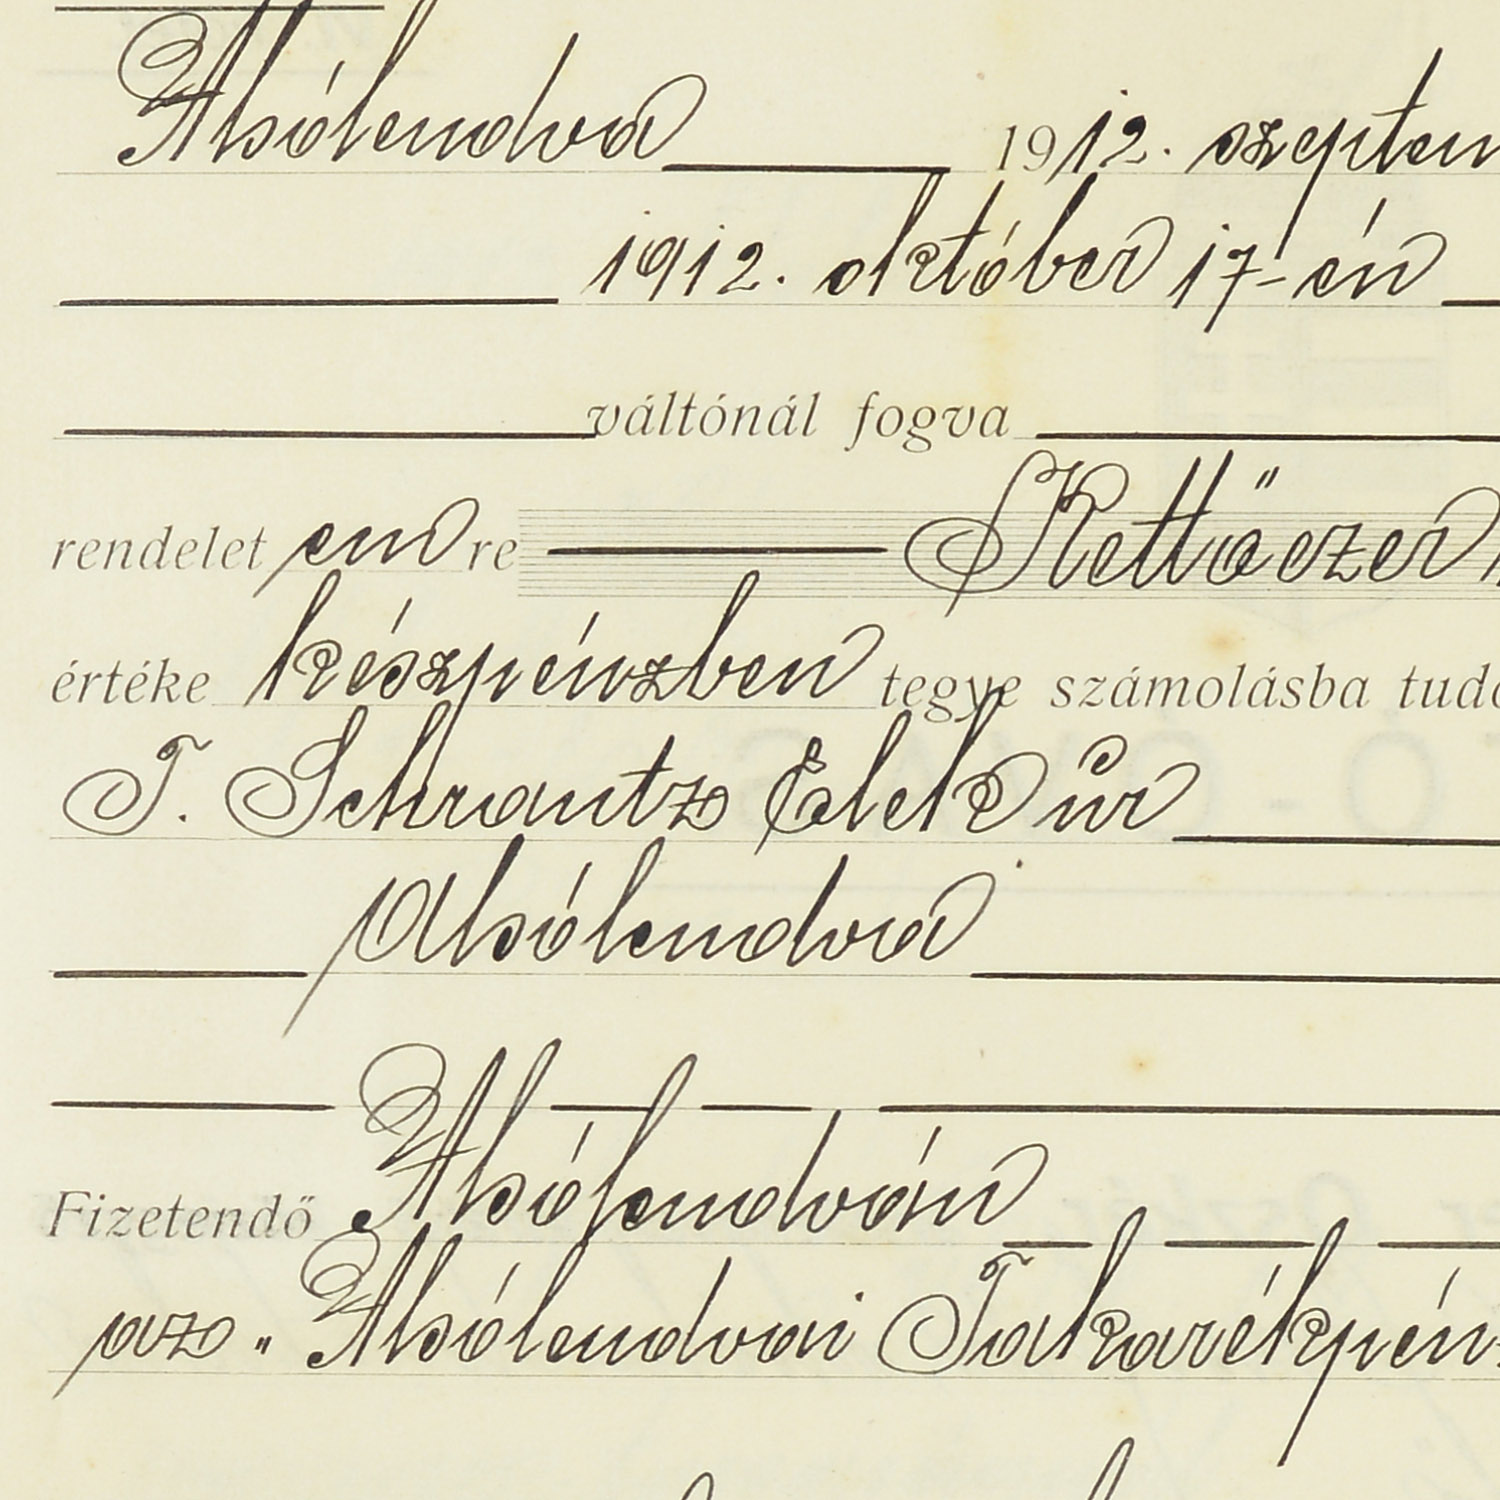 Alsólendva 1912. szeptem
1912. október 17-én
váltónál fogva
rendelet em re Kettőezer
értéke készpénzben tegye számolásba tudó
T. Schrantz Elek úr
Alsólendva
Fizetendő Alsólendván
az „Alsólendvai Takarékpénz